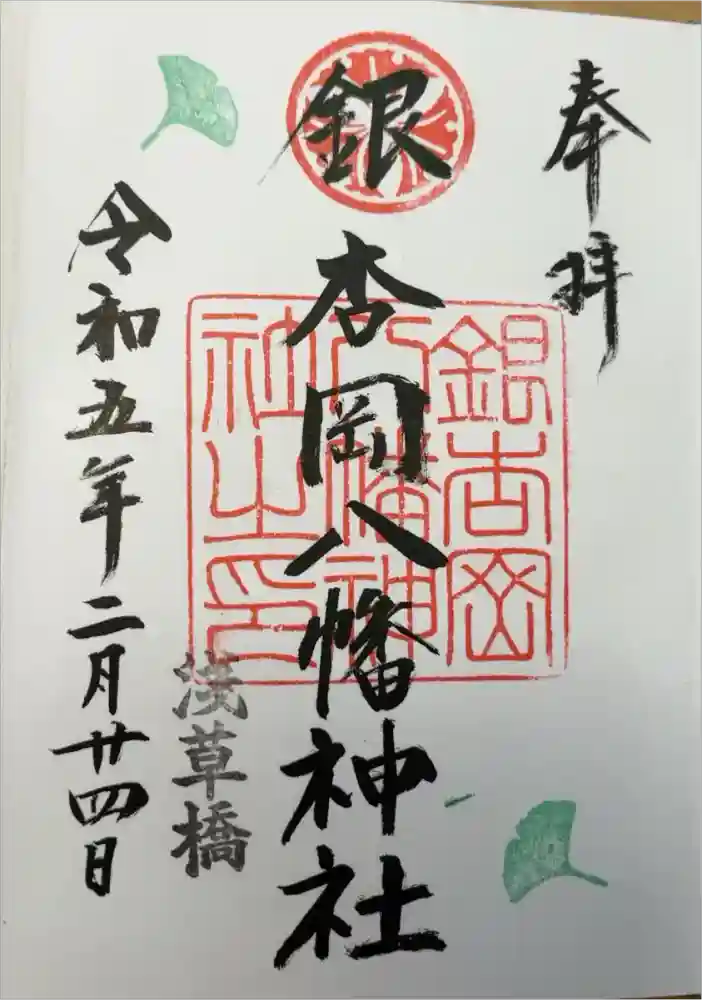 奉拝
銀杏岡八幡神社
銀杏岡
八幡神
社之印
浅草橋
令和五年二月廿四日